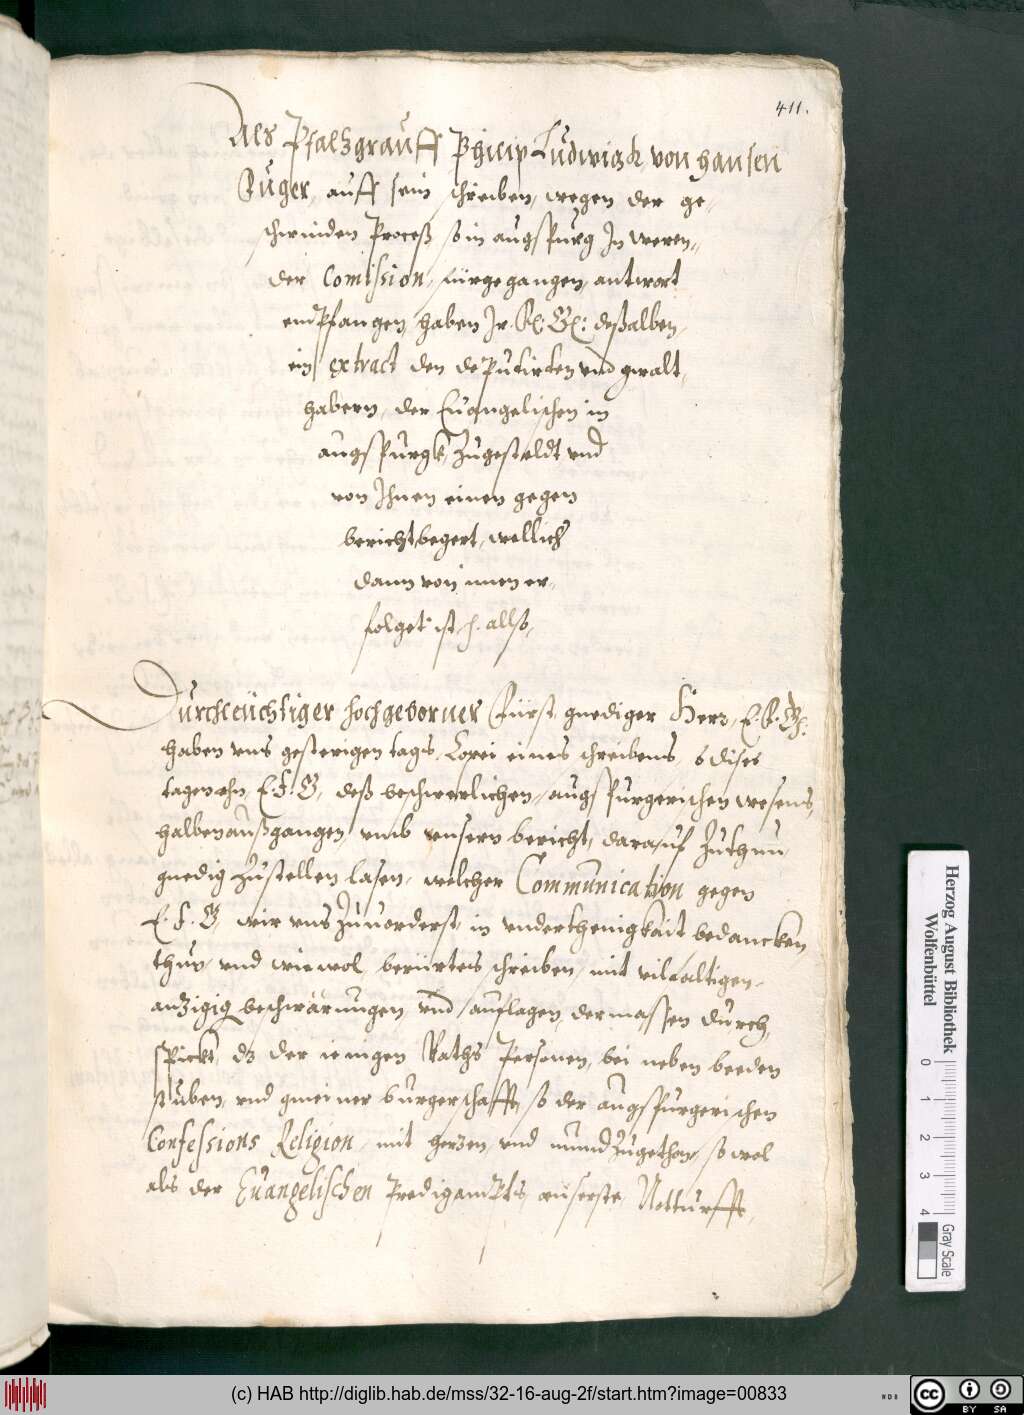 411.
Als Pfaltzgrauff Philip Ludwigk, von hansen
Fuger, auff sein schreiben, wegen der ge-
schwinden Proceß so in augspurg In weren-
der Comission, fürgegangen, antwort
empfangen, haben Ir. F. G: deßalben,
ein extract den deputirten vnd gwalt,
habern, der Euangelischen in
augspurgk, Zugesteldt vnd
von Ihnen einen gegen
bericht begert, wellich
dann von innen er-
folget ist, allso,
Durchleüchtiger hochgeborner Fürst gnediger Herr, E. F. G:
haben vns gesterigen tags Copei eines schreibens, 6 dises
tagen ahn, E. F. G, deß beschwerlichen, augspurgerischen wesens,
halben außgangen, vmb vnsern bericht, darauf Zuthun
gnedig zustellen lasen, welcher Communication gegen
E. F. G, wir vns Zuuorderst, in vnderthenigkait bedancken
thun, vnd wiewol berürtes schreiben, mit vilfaltigen
anzigig beschwärungen, vnd auflagen, dermassen durch,
spickt, dz der ienigen Raths Personen, bei neben beeden
stuben, vnd gmeiner burgerschafft, so der augspurgerischen
Confessions Religion, mit herzen, vnd mund Zugethon, so wol
als der Euangelischen Predigampts, eüserste, Notturfft,
Herzog August Bibliothek
Wolfenbüttel
0 1 2 3 4
Gray Scale
(c) HAB http://diglib.hab.de/mss/32-16-aug-2f/start.htm?image=00833
WDB
CC BY SA